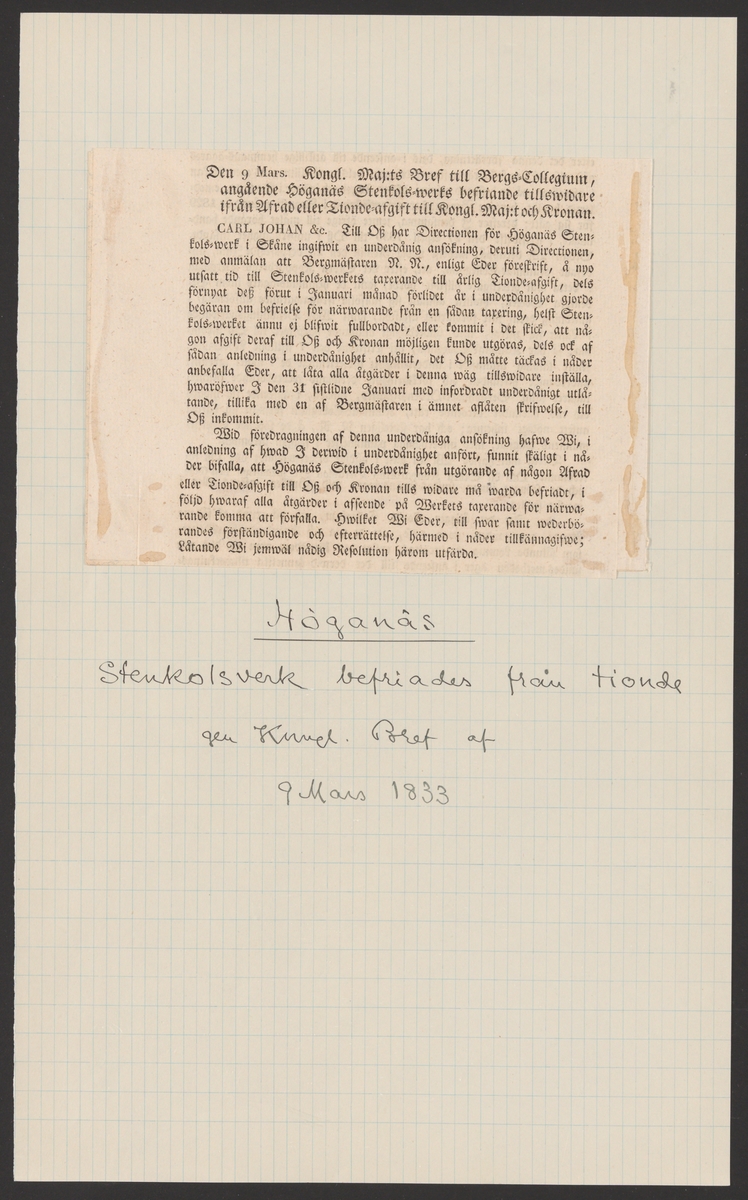 Den 9 Mars. Kongl. Maj:ts Bref till Bergs-Collegium,
angående Höganäs Stenkols-werks befriande tillswidare
ifrån Afrad eller Tionde-afgift till Kongl. Maj:t och Kronan.
CARL JOHAN &c. Till Oß har Directionen för Höganäs Sten-
kols-werk i Skåne ingifwit en underdånig ansökning, deruti Directionen,
med anmälan att Bergmästaren N. N., enligt Eder föreskrift, å nyo
utsatt tid till Stenkols-werkets taxerande till årlig Tionde-afgift, dels
förnyat deß förut i Januari månad förlidet år i underdånighet gjorde
begäran om befrielse för närwarande från en sådan taxering, helst Sten-
kols-werket ännu ej blifwit fullbordadt, eller kommit i det skick, att nå-
gon afgift deraf till Oß och Kronan möjligen kunde utgöras, dels ock af
sådan anledning i underdånighet anhållit, det Oß måtte täckas i nåder
anbefalla Eder, att låta alla åtgärder i denna wäg tillswidare inställa,
hwaröfwer I den 31 sistlidne Januari med infordradt underdånigt utlå-
tande, tillika med en af Bergmästaren i ämnet aflåten skrifwelse, till
Oß inkommit.
Wid föredragningen af denna underdåniga ansökning hafwe Wi, i
anledning af hwad I derwid i underdånighet anfört, funnit skäligt i nå-
der bifalla, att Höganäs Stenkols-werk från utgörande af någon Afrad
eller Tionde-afgift till Oß och Kronan tills widare må warda befriadt, i
följd hwaraf alla åtgärder i afseende på Werkets taxerande för närwa-
rande komma att förfalla. Hwilket Wi Eder, till swar samt wederbö-
randes förständigande och efterrättelse, härmed i nåder tillkännagifwe;
Låtande Wi jemwäl nådig Resolution härom utfärda.
Höganäs
Stenkolsverk befriades från tionde
gen Kungl. Bref af
9 Mars 1833